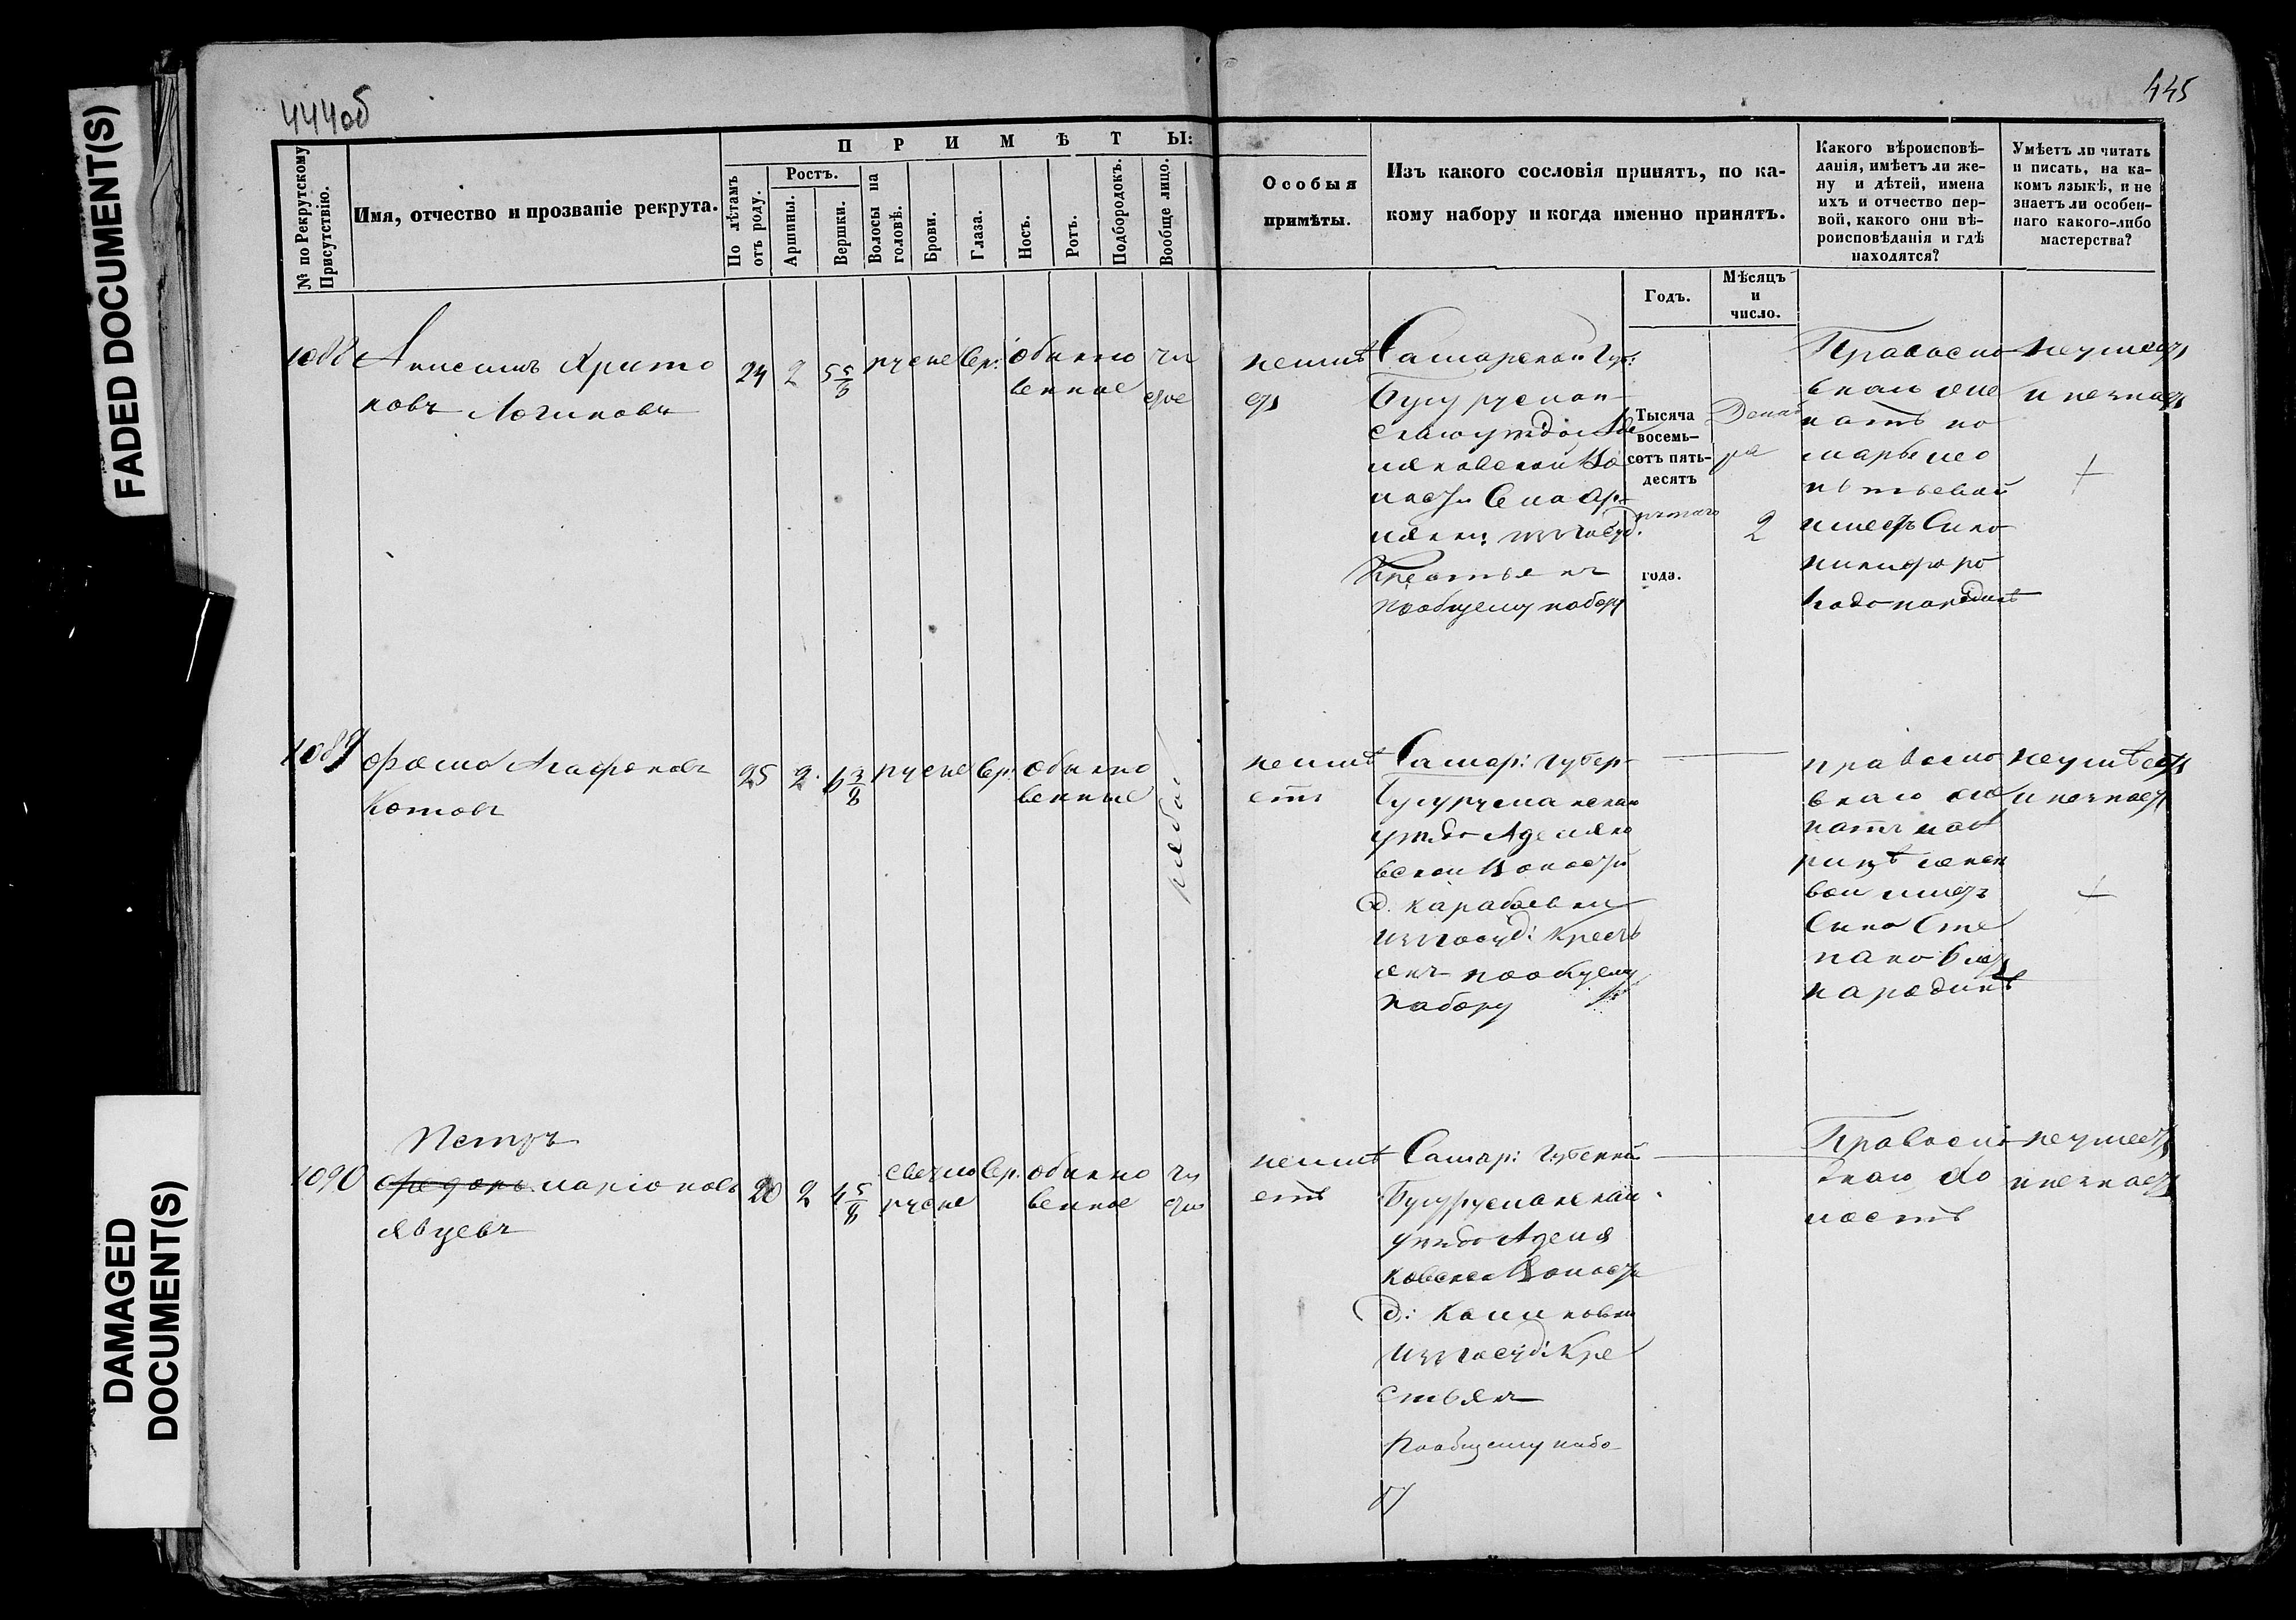 FADED DOCUMENT(S)
DAMAGED
DOCUMENT(S)
444об
445
№ по Рекрутскому
Присутствію.
Имя, отчество и прозваніе рекрута.
ПРИМѢТЫ:
По лѣтамъ
отъ роду.
Ростъ.
Аршины.
Вершки.
Волосы на
головѣ.
Брови.
Глаза.
Носъ.
Ротъ.
Подбородокъ.
Вообще лицо.
Особыя
примѣты.
Изъ какого сословія принятъ, по ка-
кому набору и когда именно принятъ.
Годъ.
Мѣсяцъ
и
число.
Какого вѣроисповѣ-
данія, имѣетъ ли же-
ну и дѣтей, имена
ихъ и отчество пер-
вой, какого они вѣ-
роисповѣданія и гдѣ
находятся?
Умѣетъ ли читать
и писать, на ка-
комъ языкѣ, и не
знаетъ ли особен-
наго какого-либо
мастерства?
1088
Анисимъ Харито
новъ Логиновъ
24
2
5 5/8
русые
Сер:
обыкно
венное
чи
стое
неимѣ
етъ
Самарской Губ:
Бугуруслан
скаго уѣзда
Во
лости Села
изъ Госуд.
Крестьянъ
пообщему набору
Тысяча
восемь-
сотъ пять-
десятъ
пятаго
года.
Декаб
ря
2
Православ
наго же
натъ на
Марье
имеетъ Сына
Никифора
на родинѣ
неумеетъ
и незнаетъ
+
1089
Фома Агафоновъ
Котовъ
25
2
6 3/8
русые
Сер:
обыкно
венные
рябое
неимѣ
етъ
Самар: Губер-
Бугурусланскаго
уѣзда Аделяко
вской Волости
д. Карабаевки
изъ Госуд: Кресть
янъ пообщему
набору
Православ
наго же
натъ
имеетъ
Сына Сте
пана
на родинѣ
неумѣетъ
и незнаетъ
+
1090
Петръ
Ларіоновъ
Явцевъ
20
2
4 5/8
светло
русые
Сер:
обыкно
венное
чи
стое
неимѣ
етъ
Самар: Губерніи
Бугурусланскаго
уѣзда Аделя
ковской Волости
д: Калиновки
изъ Госуд: Кре
стьянъ
пообщему набо
ру
Православ
наго хо
лостъ
неумеетъ
и незнаетъ